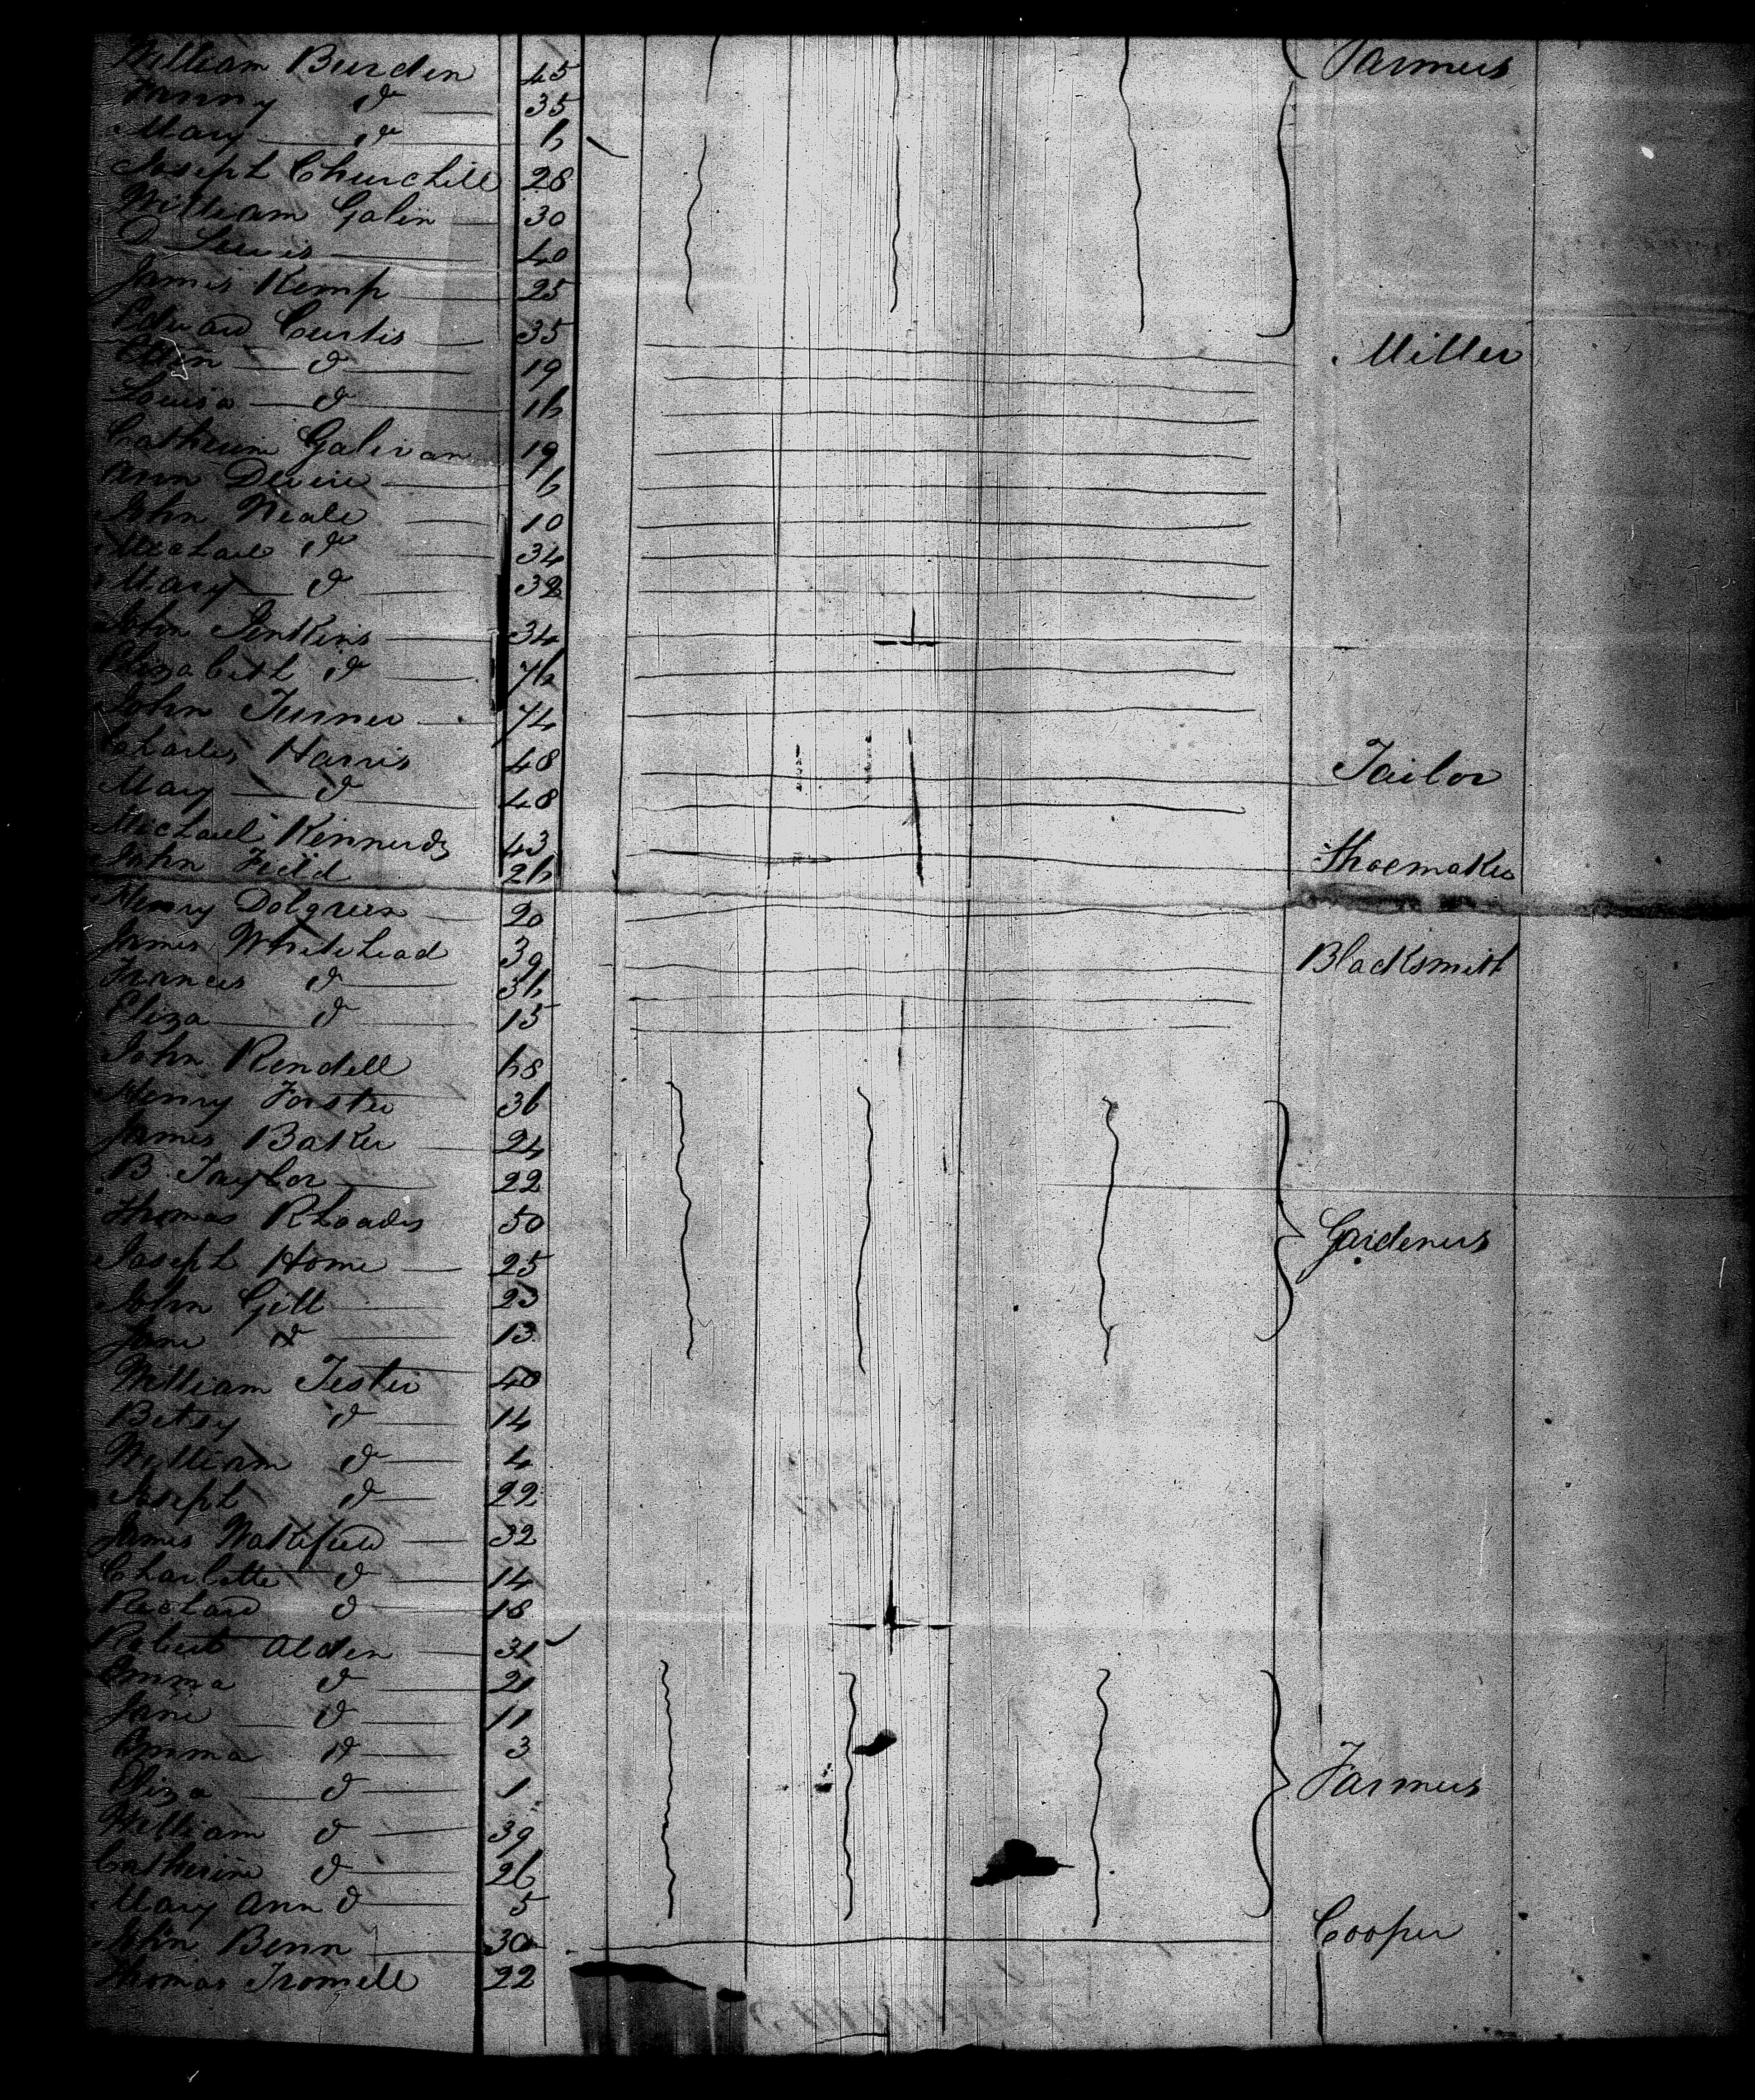 William Burden 45 Farmers
Fanny do 35
Mary do 6
Joseph Churchill 28
William Galin 30
D Lewis 40
James Kemp 25
Edward Curtis 35 Miller
Ellen do 19
Louisa do 16
Catherine Galivan 19
Ann Devine 6
John Neale 10
Michael do 34
Mary do 32
John Jenkins 34
Elizabeth do 76
John Turner 74
Charles Harris 48 Tailor
Mary do 48
Michael Kennedy 43 Shoemaker
John Field 26
Henry Dolgreen 20
James Whitehead 39 Blacksmith
Frances do 36
Eliza do 15
John Rendell 68
Henry Forster 36
James Baker 24
B. Taylor 22
Thomas Rhoades 50 Gardeners
Joseph Home 25
John Gill 23
Jane do 13
William Tester 40
Betsy do 14
William do 4
Joseph do 22
James Wakefield 32
Charlotte do 14
Richard do 18
Robert Alden 31
Emma do 21
Jane do 11
Emma do 3
Eliza do 1 Farmers
William do 39
Catherine do 26
Mary Ann do 5
John Benn 30 Cooper
Thomas Tromell 22